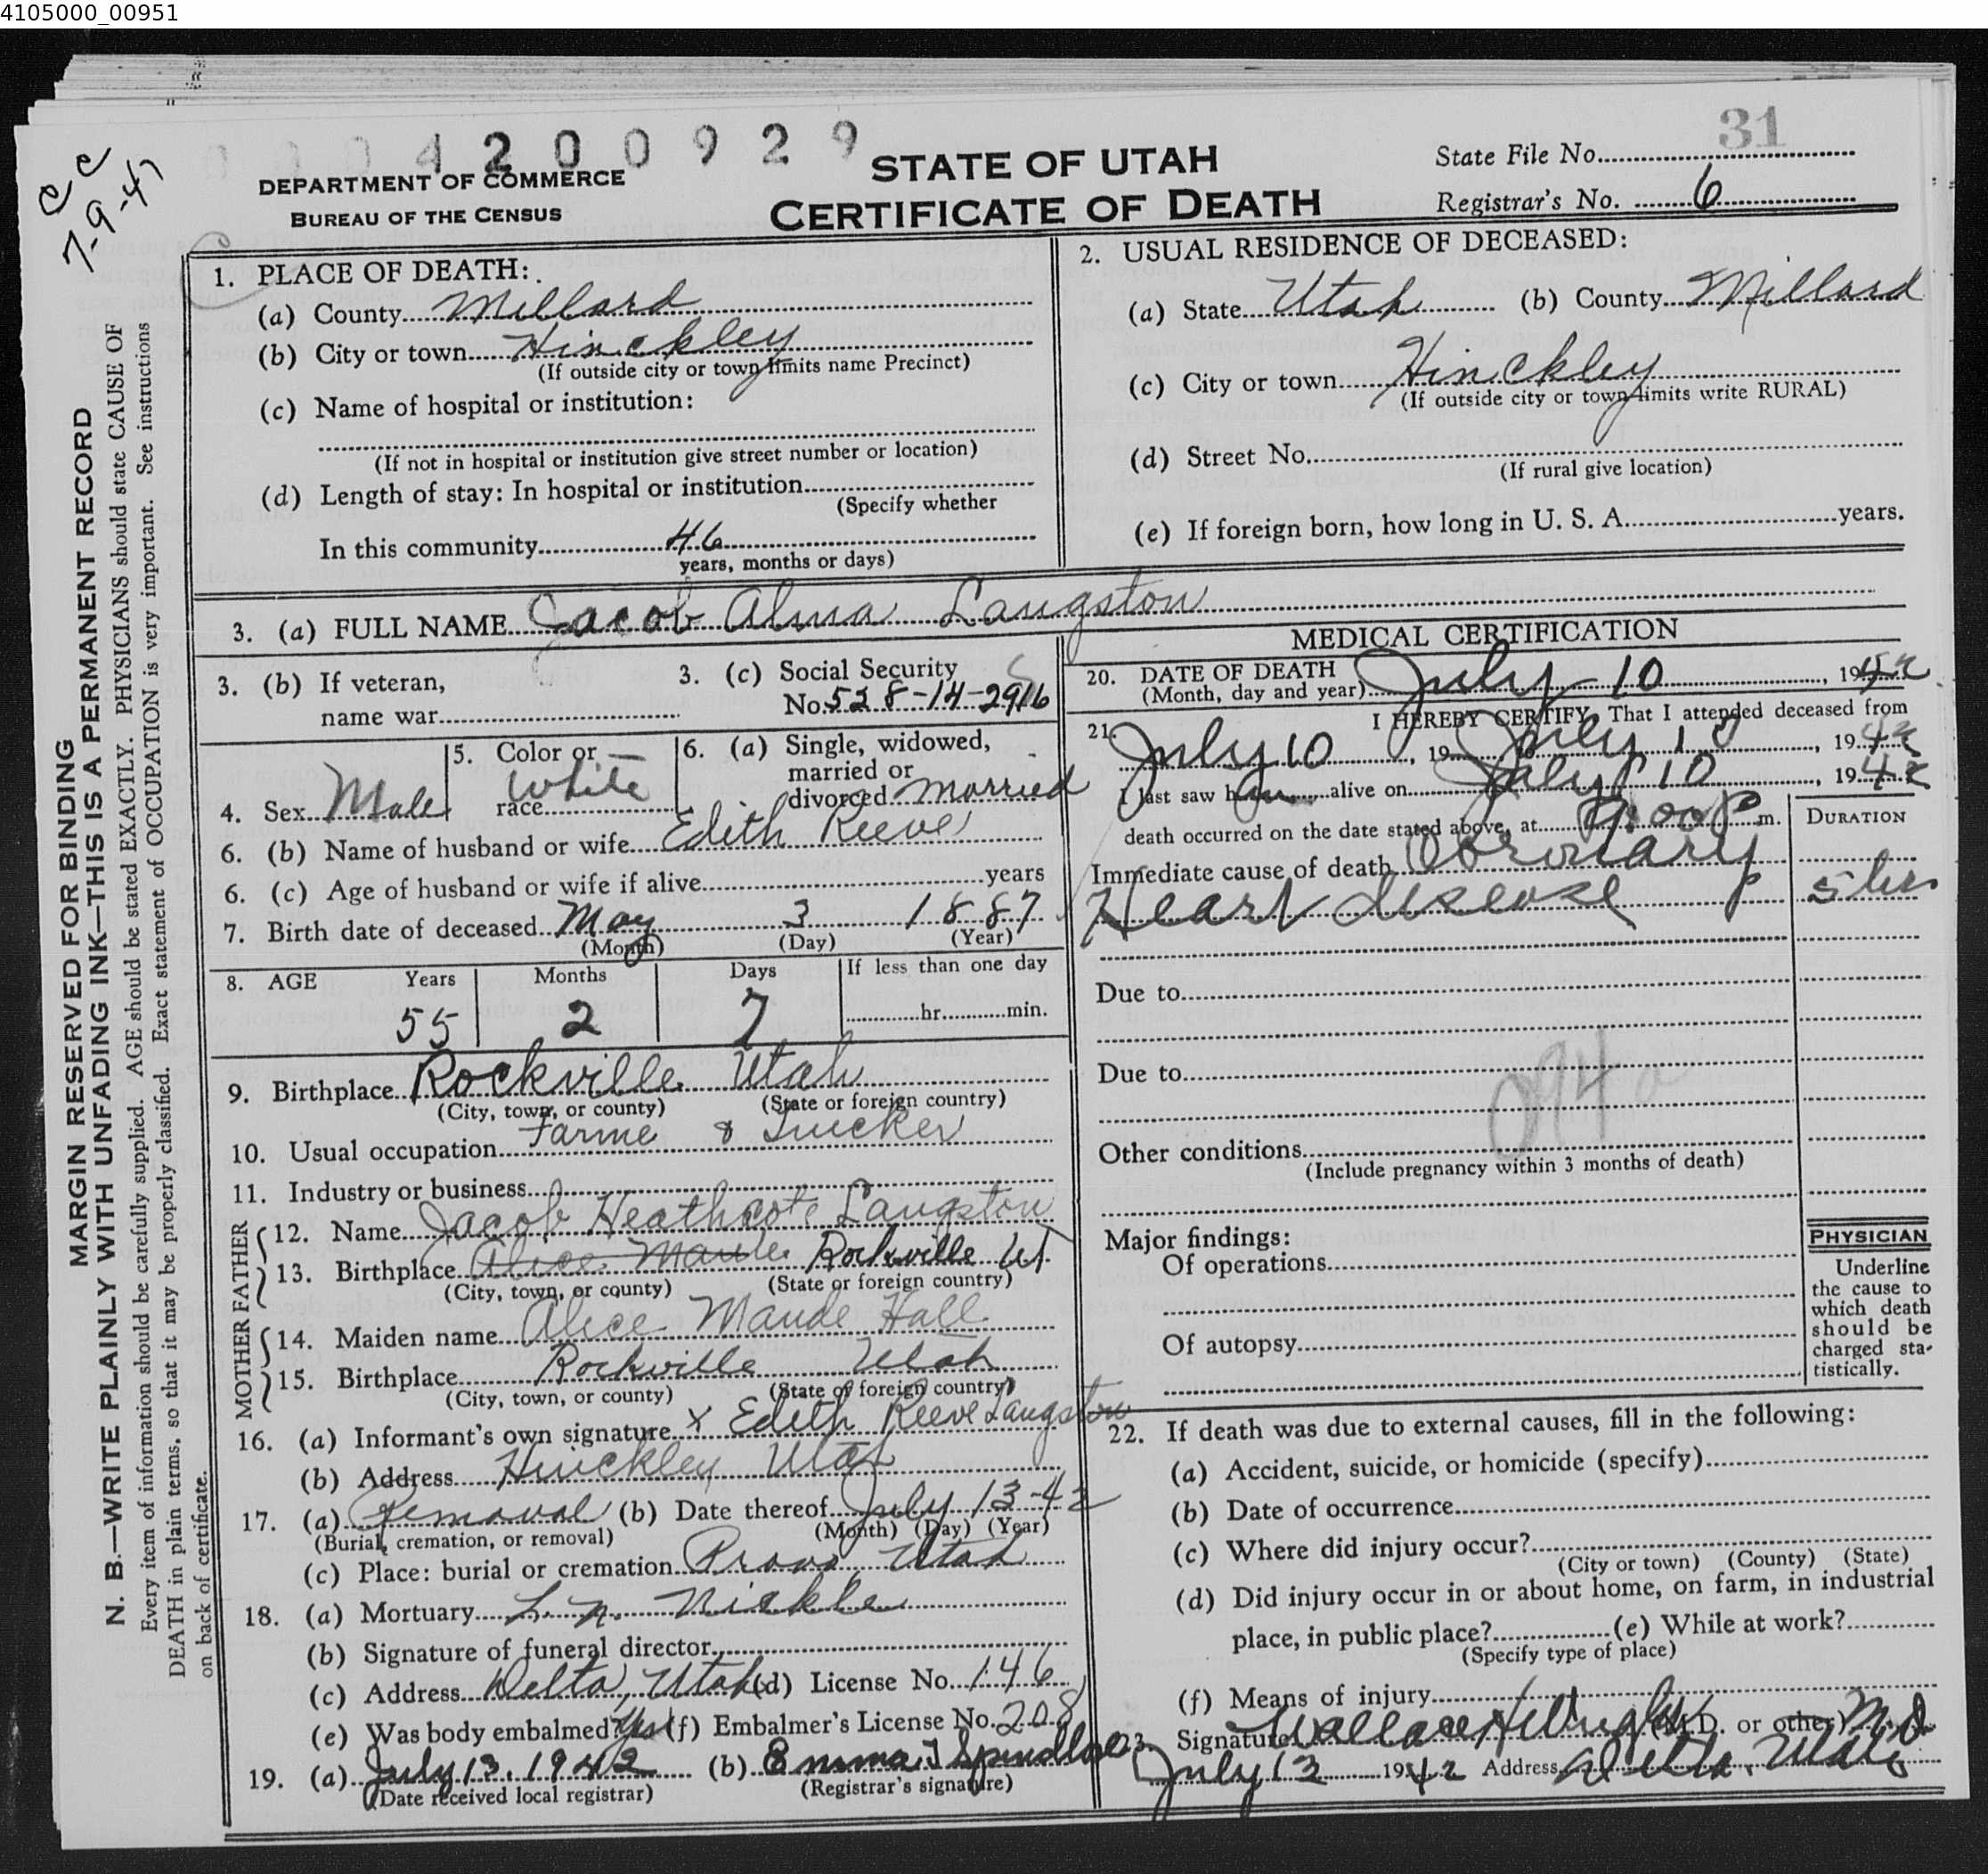 4105000_00951
0004200929
31
CC
7-9-47
DEPARTMENT OF COMMERCE
BUREAU OF THE CENSUS
STATE OF UTAH
CERTIFICATE OF DEATH
State File No.
Registrar's No. 6
MARGIN RESERVED FOR BINDING
N. B.—WRITE PLAINLY WITH UNFADING INK—THIS IS A PERMANENT RECORD
Every item of information should be carefully supplied. AGE should be stated EXACTLY. PHYSICIANS should state CAUSE OF
DEATH in plain terms, so that it may be properly classified. Exact statement of OCCUPATION is very important. See instructions
on back of certificate.
1. PLACE OF DEATH:
(a) County Millard
(b) City or town Hinckley
(If outside city or town limits name Precinct)
(c) Name of hospital or institution:
(If not in hospital or institution give street number or location)
(d) Length of stay: In hospital or institution
(Specify whether
In this community 46
years, months or days)
2. USUAL RESIDENCE OF DECEASED:
(a) State Utah (b) County Millard
(c) City or town Hinckley
(If outside city or town limits write RURAL)
(d) Street No.
(If rural give location)
(e) If foreign born, how long in U. S. A. years.
3. (a) FULL NAME Jacob Alma Langston
3. (b) If veteran,
name war
3. (c) Social Security
No. 528-14-2916
4. Sex Male
5. Color or
race White
6. (a) Single, widowed,
married or
divorced married
6. (b) Name of husband or wife Edith Reeve
6. (c) Age of husband or wife if alive years
7. Birth date of deceased May 3 1887
(Month) (Day) (Year)
8. AGE Years Months Days If less than one day
55 2 7 hr. min.
9. Birthplace Rockville Utah
(City, town, or county) (State or foreign country)
10. Usual occupation Farme & Trucker
11. Industry or business
FATHER
12. Name Jacob Heathcote Langston
13. Birthplace Alice Maude Rockville Ut
(City, town, or county) (State or foreign country)
MOTHER
14. Maiden name Alice Maude Hall
15. Birthplace Rockville Utah
(City, town, or county) (State of foreign country)
16. (a) Informant's own signature x Edith Reeve Langston
(b) Address Hinckley Utah
17. (a) Removal (b) Date thereof July 13-42
(Burial, cremation, or removal) (Month) (Day) (Year)
(c) Place: burial or cremation Provo, Utah
18. (a) Mortuary L. N. Nickle
(b) Signature of funeral director
(c) Address Delta, Utah (d) License No. 146
(e) Was body embalmed? Yes (f) Embalmer's License No. 208
19. (a) July 13, 1942 (b) Emma J
(Date received local registrar) (Registrar's signature)
MEDICAL CERTIFICATION
20. DATE OF DEATH
(Month, day and year) July 10, 1942
21. I HEREBY CERTIFY, That I attended deceased from
July 10, 19 to July 10, 1942
I last saw him alive on July 10, 1942
death occurred on the date stated above, at P m.
Immediate cause of death Coronary
Heart disease
DURATION
5 hrs
Due to
Due to
094a
Other conditions
(Include pregnancy within 3 months of death)
Major findings:
Of operations
Of autopsy
PHYSICIAN
Underline
the cause to
which death
should be
charged sta-
tistically.
22. If death was due to external causes, fill in the following:
(a) Accident, suicide, or homicide (specify)
(b) Date of occurrence
(c) Where did injury occur?
(City or town) (County) (State)
(d) Did injury occur in or about home, on farm, in industrial
place, in public place? (e) While at work?
(Specify type of place)
(f) Means of injury
23. Signature Wallace H Wright (M.D. or other) M.D.
July 13 1942 Address Delta, Utah